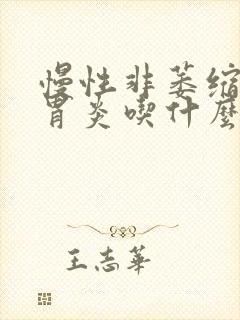 慢性非萎缩
胃炎喫什麼
王志華